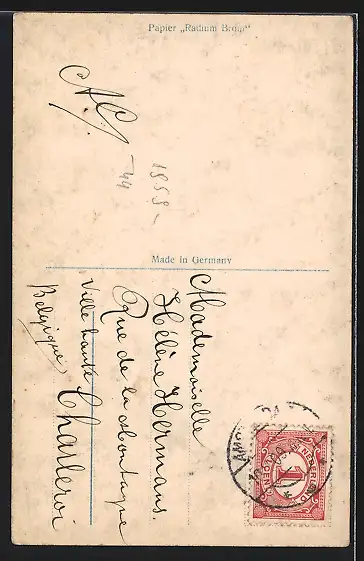 Papier „Radium Brom"
A.C.
1858-
-44
Made in Germany
Mademoiselle
Hélène Hermans.
Rue de la Montagne
Ville haute Charleroi
Belgique
NEDERLAND
1